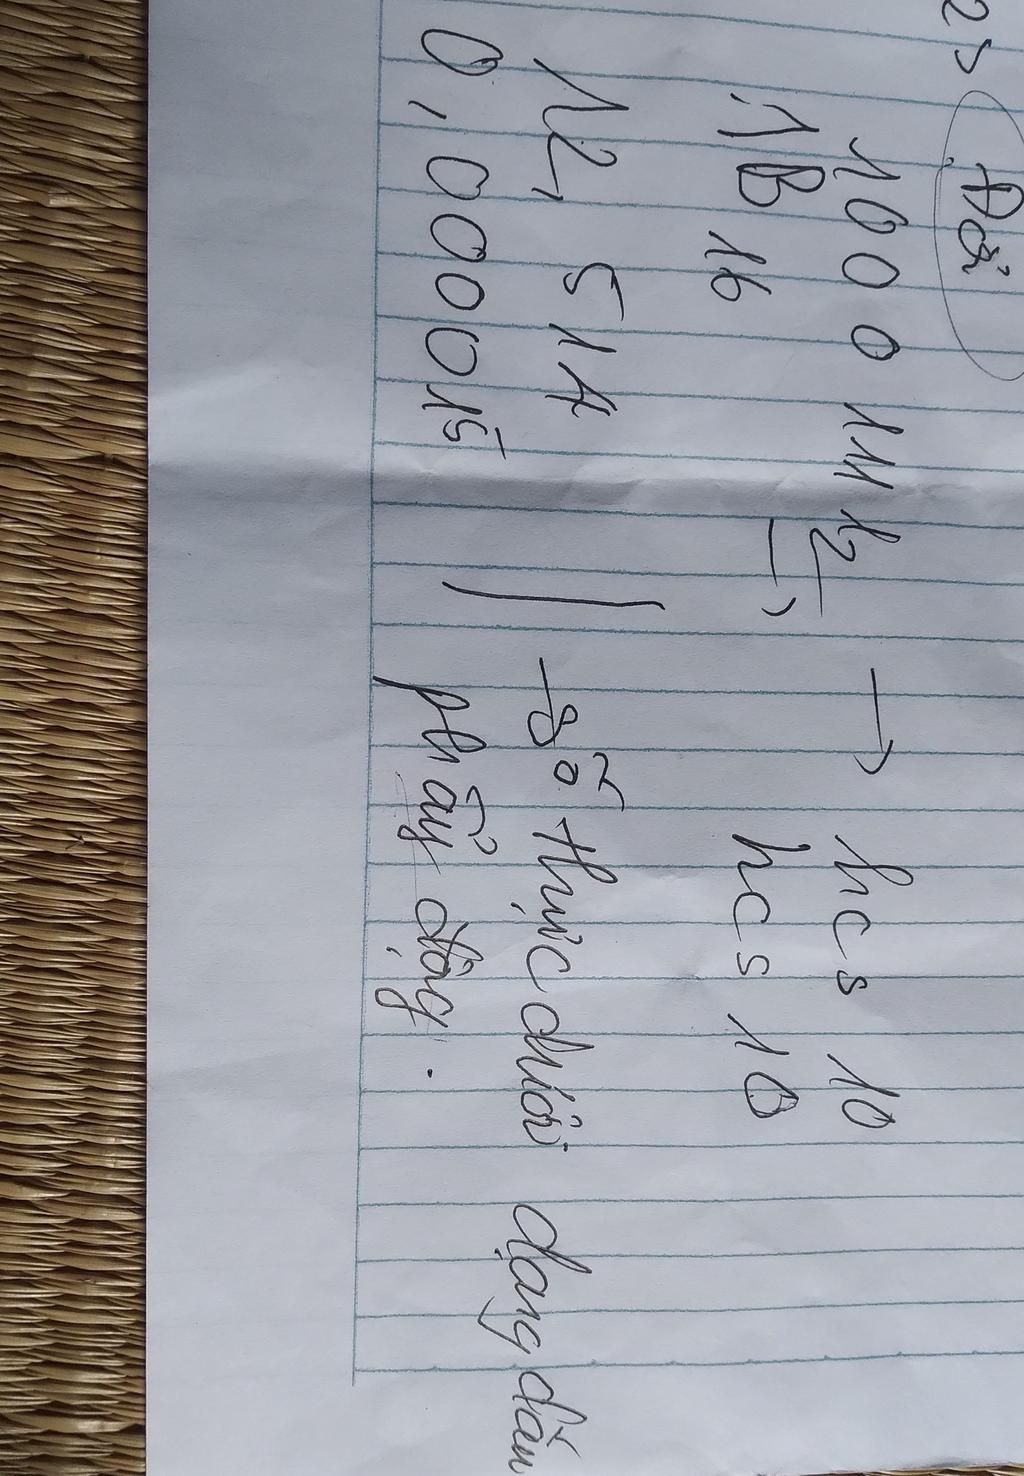 2, Đổi
1000 111 2 → hcs 10
1B 16 → hcs 10
12, 514
0,000015
- số thực dưới dạng dấu
phẩy động.